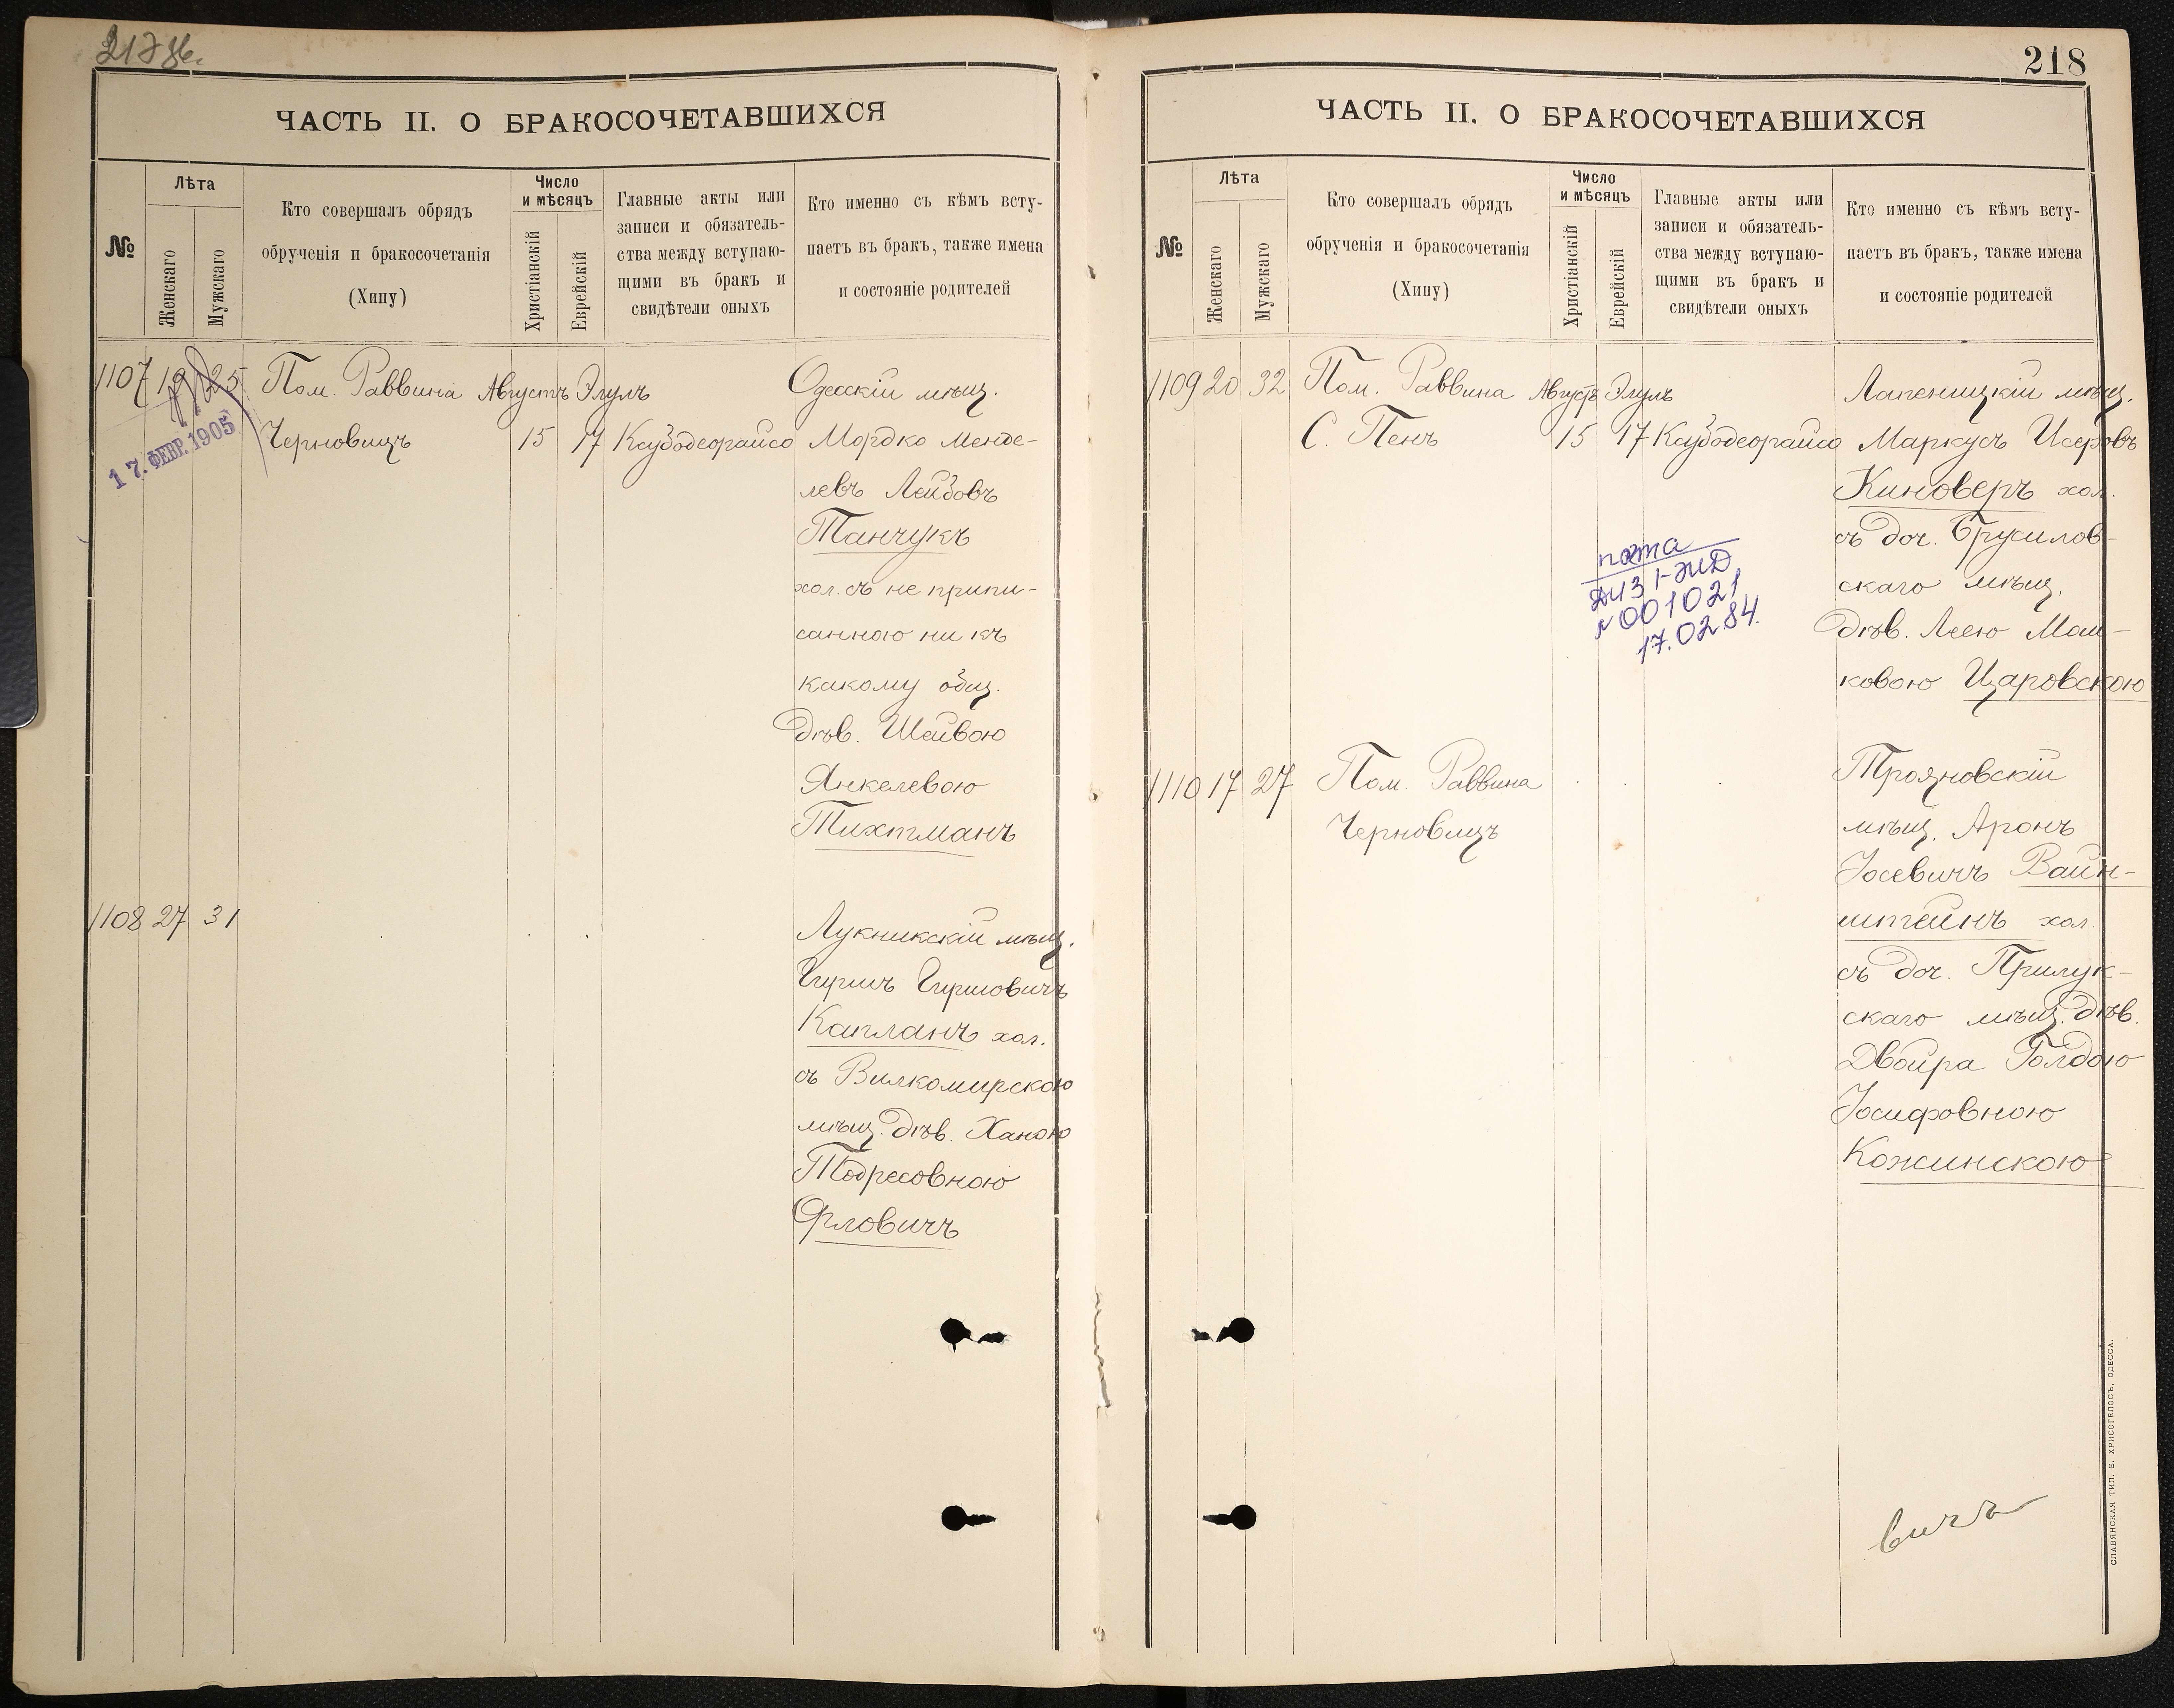 217 об.
ЧАСТЬ II. О БРАКОСОЧЕТАВШИХСЯ
№
Лѣта
Женскаго
Мужскаго
Кто совершалъ обрядъ
обрученія и бракосочетанія
(Хипу)
Число
и мѣсяцъ
Христіанскій
Еврейскій
Главные акты или
записи и обязатель-
ства между вступаю-
щими въ бракъ и
свидѣтели оныхъ
Кто именно съ кѣмъ всту-
паетъ въ бракъ, также имена
и состояніе родителей
1107 19 25 Пом. Раввина Августъ Элулъ
Черновицъ 15 17 Ксубодеорайсо
17. ФЕВР. 1905
Одесскій мѣщ.
Мордко Менде-
левъ Лейбовъ
Танчукъ
хол. съ не припи-
санною ни къ
какому общ.
дѣв. Шейвою
Янкелевою
Тихтманъ
1108 27 31
Лукникскій мѣщ.
Гиршъ Гиршовичъ
Капланъ хол.
съ Вилкомирскою
мѣщ. дѣв. Ханою
Тодресовною
Орловичъ
218
ЧАСТЬ II. О БРАКОСОЧЕТАВШИХСЯ
№
Лѣта
Женскаго
Мужскаго
Кто совершалъ обрядъ
обрученія и бракосочетанія
(Хипу)
Число
и мѣсяцъ
Христіанскій
Еврейскій
Главные акты или
записи и обязатель-
ства между вступаю-
щими въ бракъ и
свидѣтели оныхъ
Кто именно съ кѣмъ всту-
паетъ въ бракъ, также имена
и состояніе родителей
1109 20 32 Пом. Раввина Августъ Элулъ
С. Пенъ 15 17 Ксубодеорайсо
Лапеницкій мѣщ.
Маркусъ Исеровъ
Киноверъ хол.
съ доч. Брусилов-
скаго мѣщ.
дѣв. Леею Мош-
ковою Царовскою
001021
17.02.84.
1110 17 27 Пом. Раввина
Черновицъ
Трояновскій
мѣщ. Аронъ
Іосевичъ Вайн-
штейнъ хол.
съ доч. Прилук-
скаго мѣщ. дѣв.
Двойра Голдою
Іосифовною
Кожинскою
вичъ
СЛАВЯНСКАЯ ТИП. Е. ХРИСОГЕЛОСЪ, ОДЕССА.